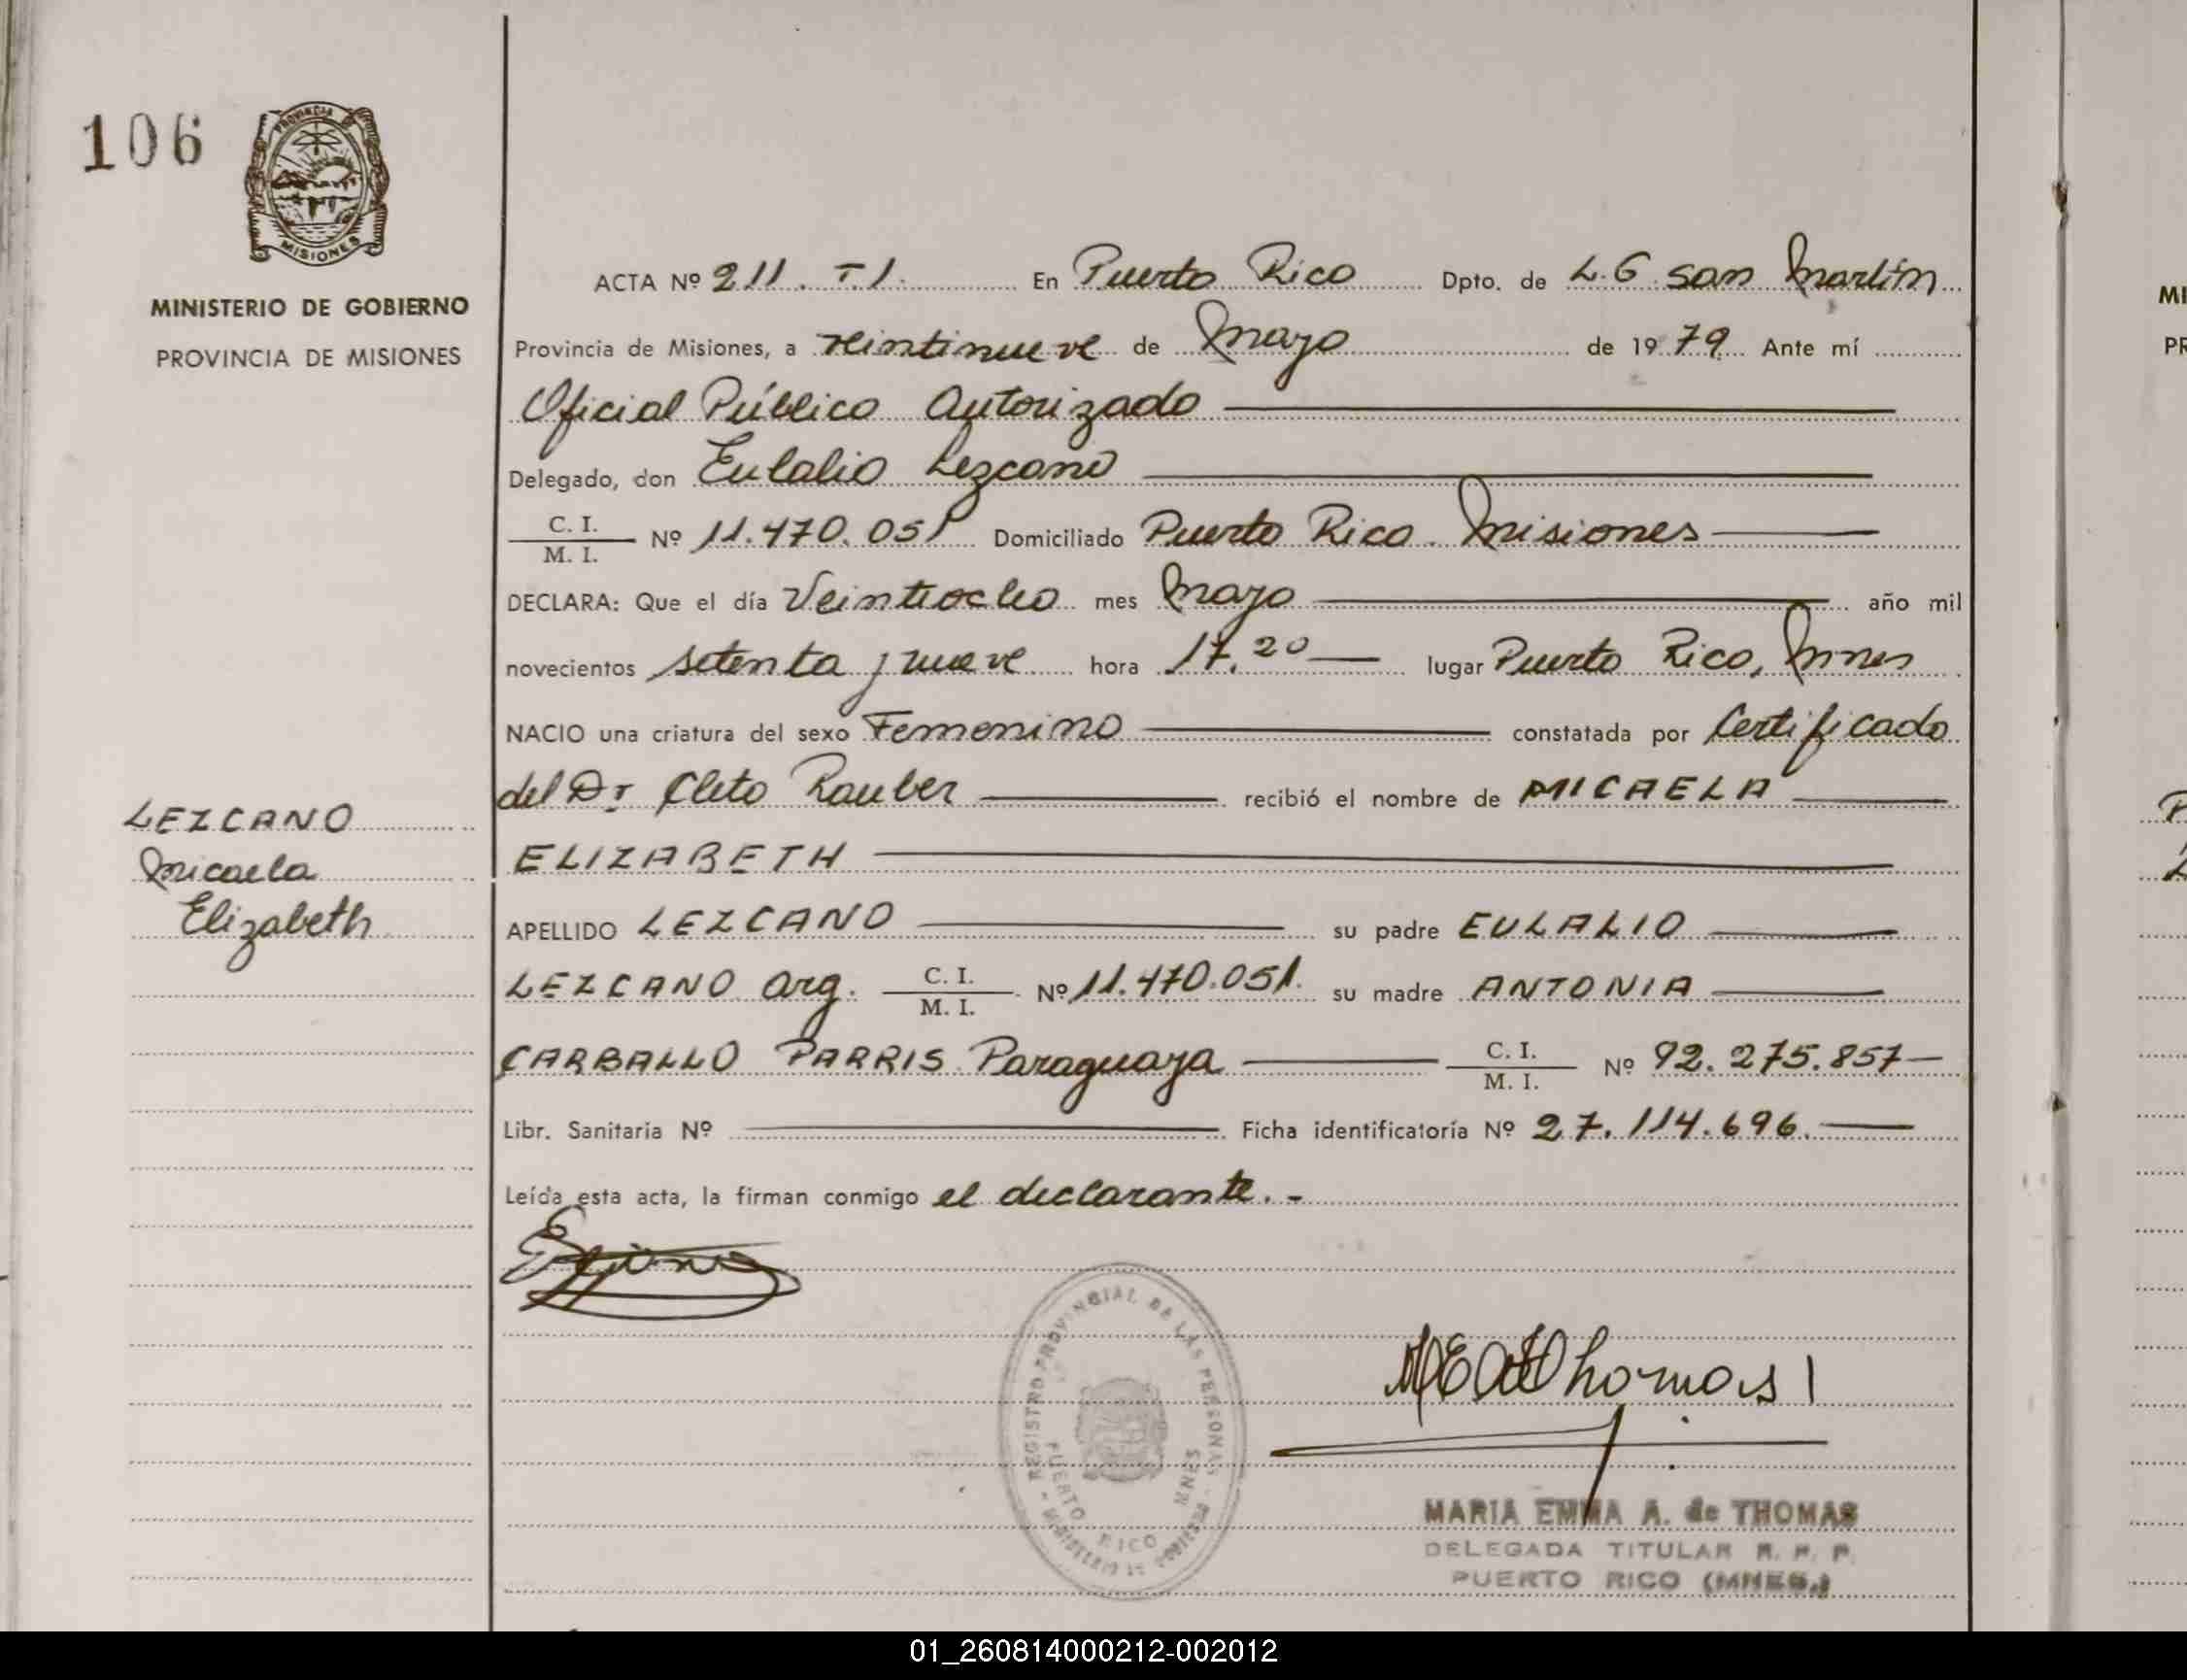 106
PROVINCIA DE
MISIONES
MINISTERIO DE GOBIERNO
PROVINCIA DE MISIONES
LEZCANO
Micaela
Elizabeth
ACTA Nº 211. T I. En Puerto Rico Dpto. de L. G. San Martín
Provincia de Misiones, a veintinueve de Mayo de 1979 Ante mí
Oficial Público Autorizado
Delegado, don Eulalio Lezcano
C. I. / M. I. Nº 11.470.051 Domiciliado Puerto Rico. Misiones
DECLARA: Que el día Veintiocho mes Mayo año mil
novecientos setenta y nueve hora 17.20 lugar Puerto Rico, Mnes
NACIO una criatura del sexo Femenino constatada por Certificado
del Dr Cleto Rauber recibió el nombre de MICAELA
ELIZABETH
APELLIDO LEZCANO su padre EULALIO
LEZCANO Arg. C. I. / M. I. Nº 11.470.051. su madre ANTONIA
CARBALLO PARRIS Paraguaya C. I. / M. I. Nº 92.275.857
Libr. Sanitaria Nº Ficha identificatoria Nº 27.114.696.
Leída esta acta, la firman conmigo el declarante.-
REGISTRO PROVINCIAL DE LAS PERSONAS - MINISTERIO DE GOBIERNO -
PUERTO RICO MNES
MEAdeThomas
MARIA EMMA A. de THOMAS
DELEGADA TITULAR R. P. P.
PUERTO RICO (MNES.)
01_260814000212-002012